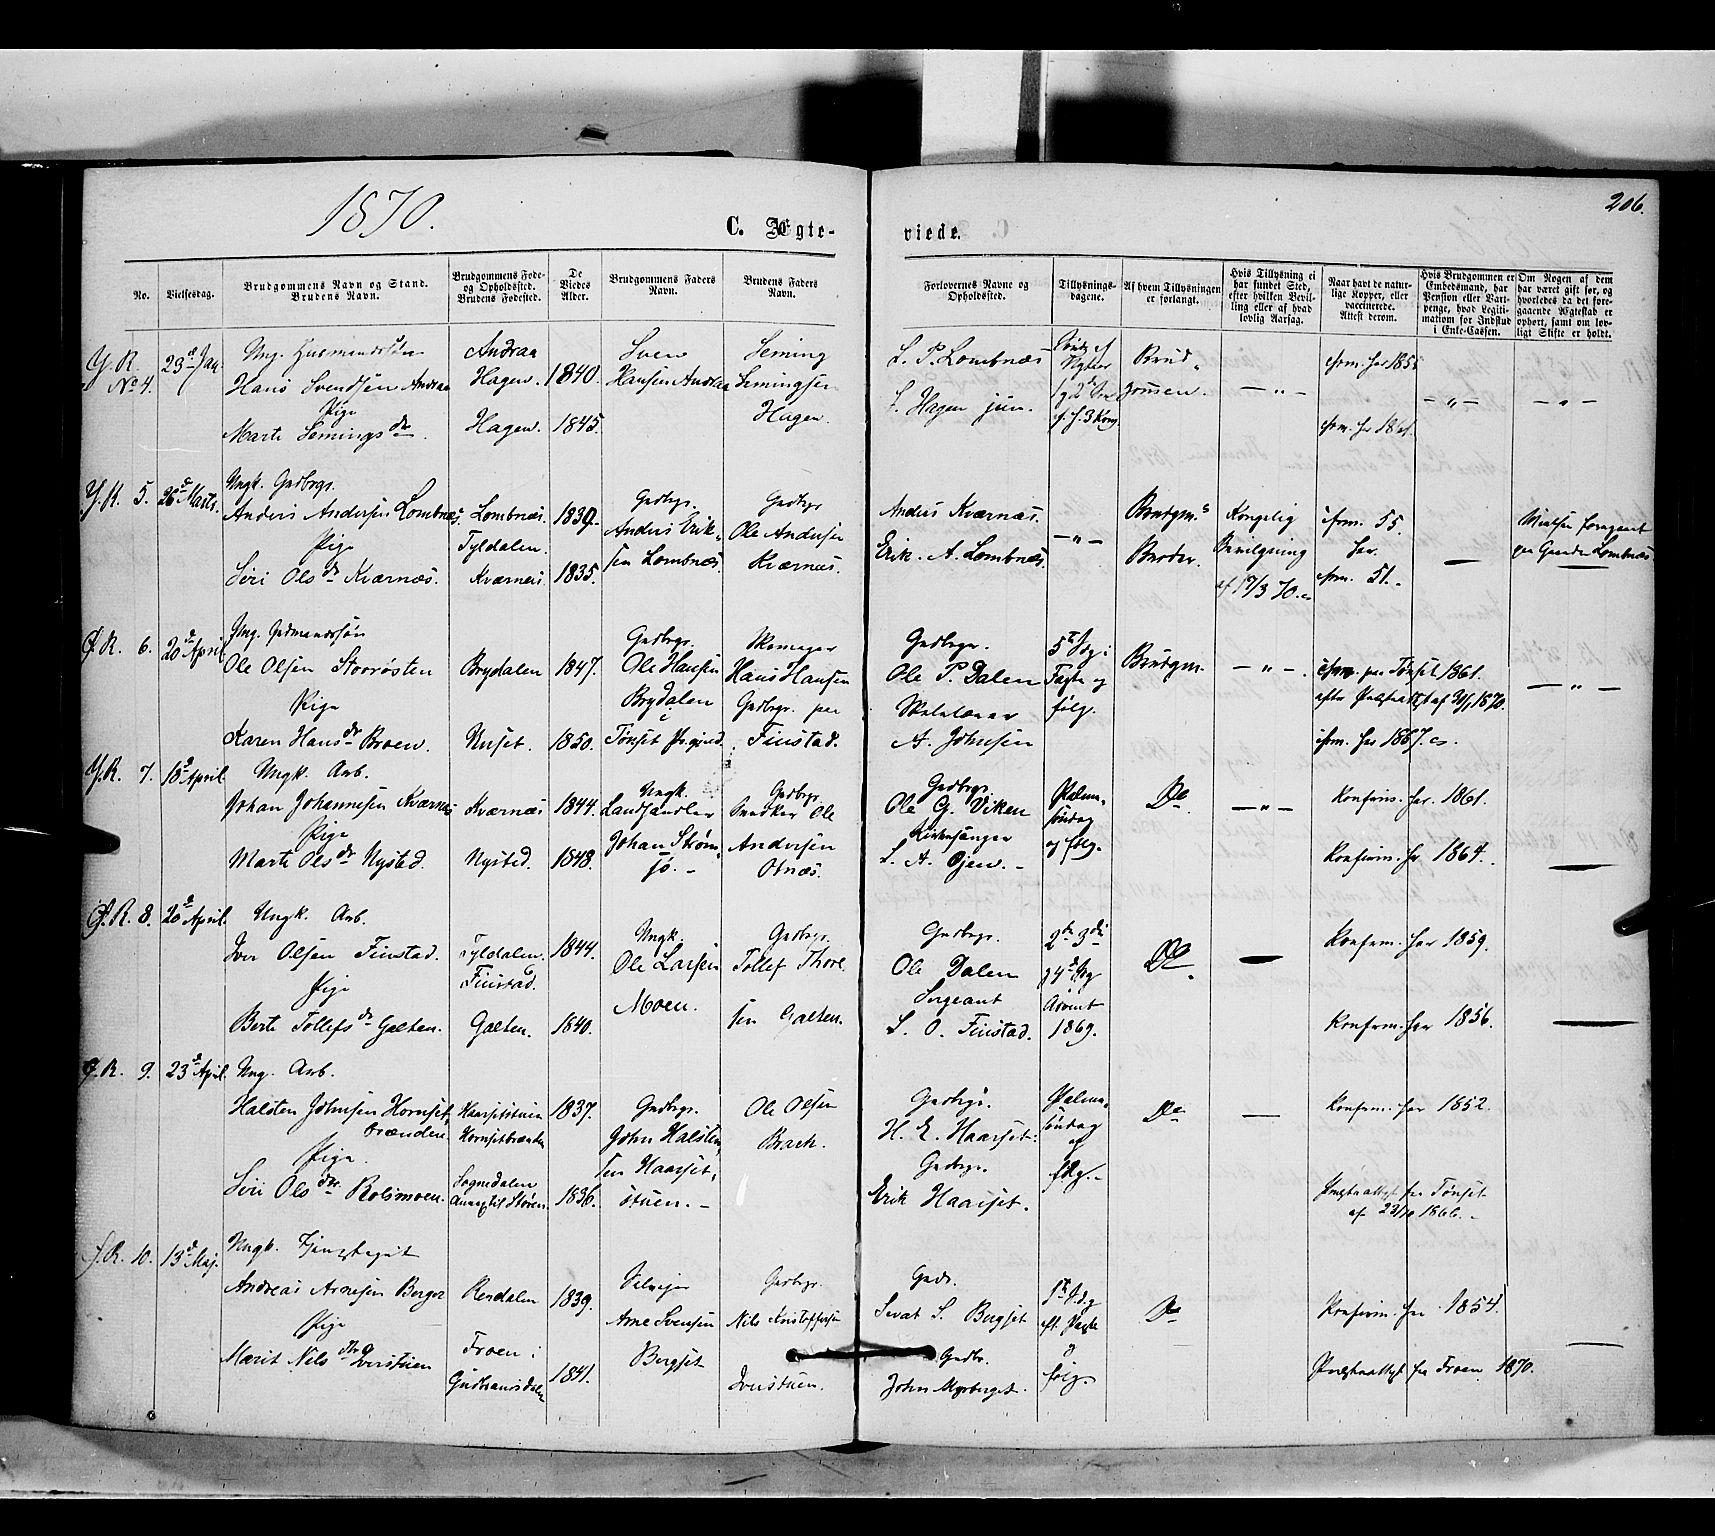 206.
1870.
C. Ægte-
viede.
No.
Vielsesdag.
Brudgommens Navn og Stand.
Brudens Navn.
Brudgommens Føde-
og Opholdssted.
Brudens Fødested.
De
Viedes
Alder.
Brudgommens Faders
Navn.
Brudens Faders
Navn.
Forlovernes Navne og
Opholdssted.
Tillysnings-
dagene.
Af hvem Tillysningen
er forlangt.
Hvis Tillysning ei
har fundet Sted,
efter hvilken Bevil-
ling eller af hvad
lovlig Aarsag.
Naar havt de natur-
lige Kopper, eller
vaccinerede.
Attest derom.
Hvis Brudgommen er
Embedsmand, har
Pension eller Vart-
penge, hvad Legiti-
mation for Indskud
i Enke-Cassen.
Om Nogen af dem
har været gift før, og
hvorledes da det fore-
gaaende Ægteskab er
ophørt, samt om lov-
ligt Skifte er holdt.
Y. R.
No 4.
23de Jan.
Ung. Husmandssøn
Hans Svendsen Andraa
Pige
Marte Semingsdr.
Andraa
Hagen.
Hagen.
1840.
1845.
Sven
Hansen Andraa
Seming
Semingsen
Hagen.
S. P. Lombnæs
S. Hagen jun.
Nytaar
Brud
gommen.
— „ —
kfrm. her 1855
kfrm. her 1861.
— „ —
— „ —
Y. R. 5.
26de Marts.
Ungk. Gdbrgr.
Anders Andersen Lombnæs
Pige
Siri Olsdr Kværnæs.
Lombnæs.
Tyldalen.
Kværnæs.
1839.
1835.
Gdbrgr.
Anders Erik-
sen Lombnæs.
Gdbrgr.
Ole Andersen
Kværnæs.
Anders Kværnæs.
Erik. A. Lombnæs.
— „ —
Brudgm.s
Broder.
Kongelig
Bevilgning
af 17/3 70.
kfrm. 55.
her.
kfrm. 51.
—
paa Gaarden Lombnæs
Ø. R. 6.
20de April
Ung. Gdmandssøn
Ole Olsen Storrøsten
Pige
Karen Hansdr Broen.
Brydalen
Unset.
1847.
1850.
Gdbrgr.
Ole Hansen
Brydalen
Tønset Prgjeld.
Skomager
Hans Hansen
Gdbrgr. paa
Finstad.
Gdbrgr.
Ole P. Dalen
Skolelærer
A. Johnsen
5te Søg i
Faste og
følg.
Brudgm.
— „ —
kfrm. paa Tønset 1861.
efter Præsteattest af 31/1 1870.
kfrm. her 1867.
— „ —
Y. R. 7.
18de April.
Ungk. Arb.
Johan Johannesen Kværnæs
Pige
Marte Olsdr Nystad.
Kværnæs
Nystad.
1844.
1848.
Ungk.
Landhandler
Johan Strøm-
sø. —
Gdbrgr.
Snedker Ole
Andersen
Otnæs.
Gdbrgr.
Ole G. Viken
Kirkesanger
S. A. Øjen. —
Palme-
søndag
og følg.
Do
— „ —
Konfirm. her. 1861.
Konfirm. her 1864.
—
Ø. R. 8.
20de April.
Ungk. Arb.
Iver Olsen Finstad.
Pige
Berte Tollefsdr Galten.
Tyldalen.
Finstad.
Galten.
1844.
1840.
Ungk.
Ole Larsen
Moen.
Gdbrgr.
Tollef Thore
sen Galten.
Gdbrgr.
Ole Dalen
Sergeant
S. O. Finstad.
2de 3die
g 4de Søg
Advent
1869.
Do
—
Konfrm. her 1859.
Konfrm. her 1856.
—
Ø. R. 9.
23de April.
Ung. Arb.
Halsten Johnsen Hornset-
brænden
Pige.
Siri Olsdtr Rolsmoen.
Haarsetstuen
Hornsetbrænden
Sognedalen
Annex til Støren
1837.
1836.
Gdbrgr.
John Halsten-
sen Haarset-
stuen. —
Ole Olsen
Braek.
Gdbrgr.
H. E. Haarset.
Gdbrgr.
Erik Haarset.
Palme-
søndag
og
følg. —
Do
—
Konfrm. her 1852.
Præsteattest fra Tønset
af 23/10 1866. —
10.
13de Maj.
Ungk.
Andreas Arnesen Berget
Pige
Marit Nilsdtr Iverstuen
Rendalen
Froen i
Gudbransdalen
1839.
1841.
Selvejer
Arne Svensen
Bergset
Gdbrgr.
Nils Kristoffersen
Iverstuen.
Gdbr.
Sivat S. Bergset
Gdbr.
John Myrberget.
1ste Sdg
eft. Paaske
og
følg.
Do
Konfirm. her 1854.
Præsteattest fra Froen 1870.
—